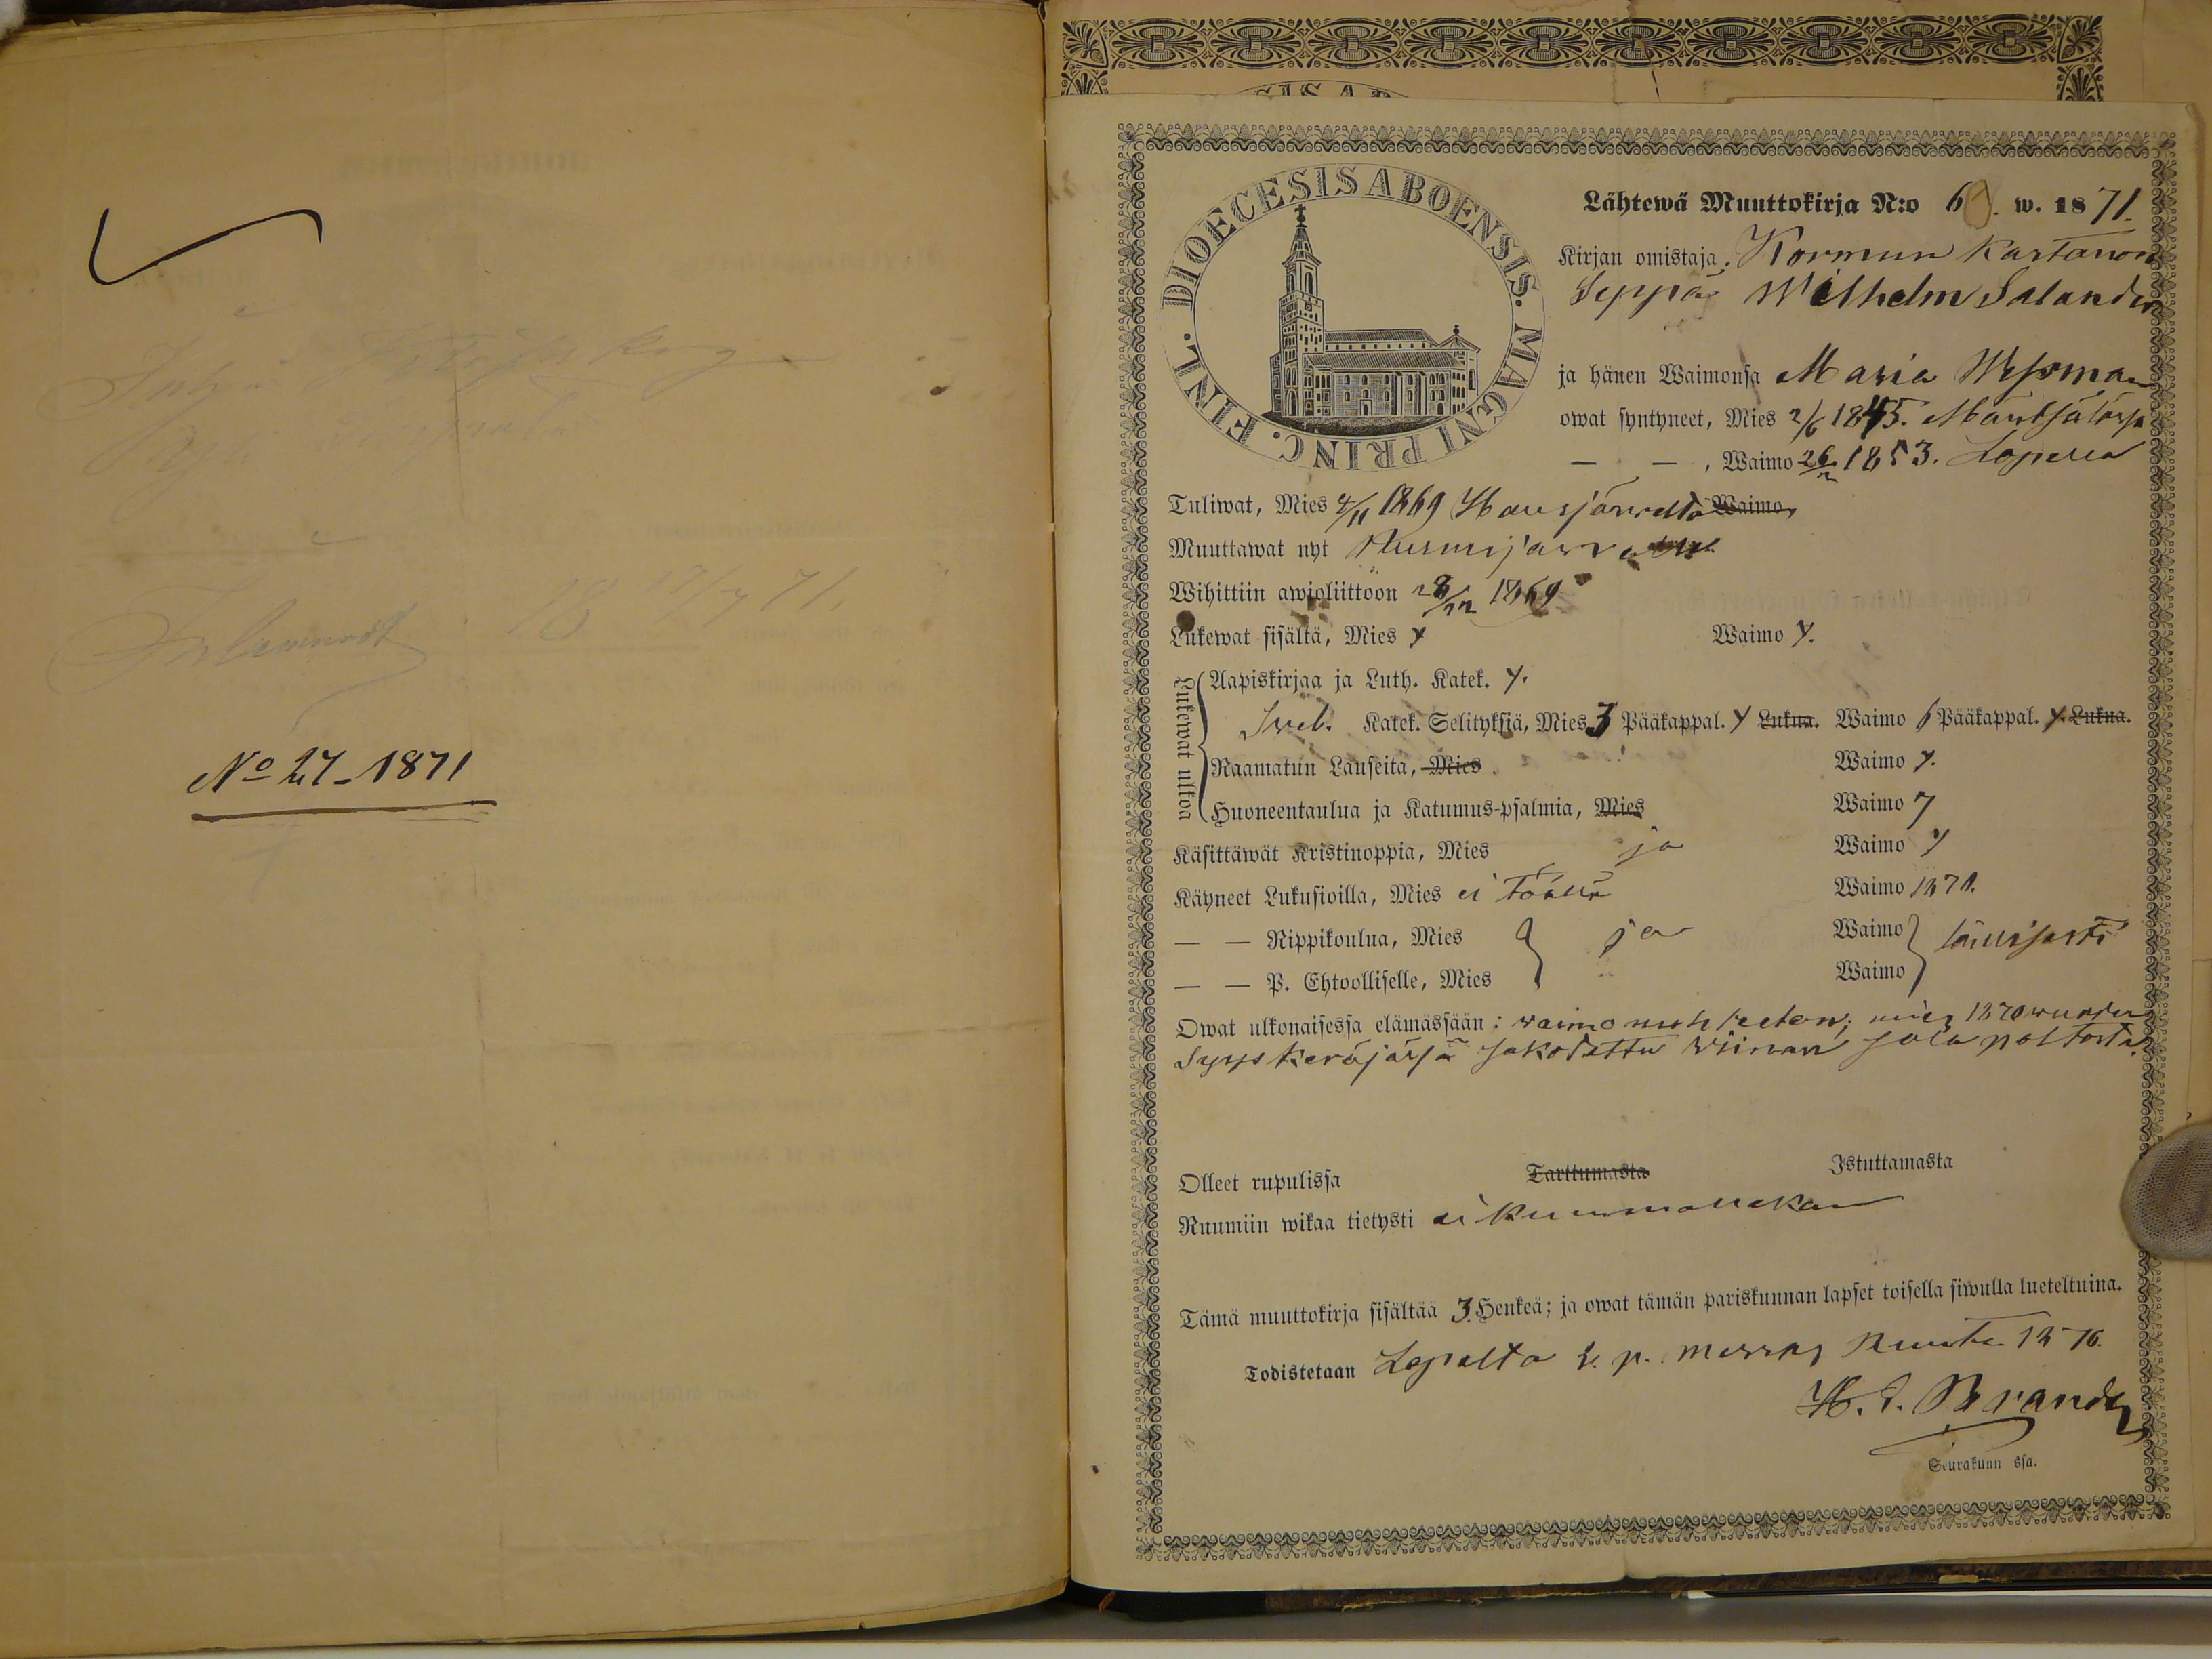 No 27-1871
DIOECESIS ABOENSIS. MAGNI PRINC. FINL.
Lähtewä Muuttokirja N:o 6 . w. 1871.
Kirjan omistaja. Kormun kartanon
Seppä Wilhelm Salander
ja hänen Waimonsa Maria
owat syntyneet, Mies 2/6 1845. Mäntsälässä
— — , Waimo 26/2 1853. Lopella
Tuliwat, Mies 4/11 1869 Hausjärweltä Waimo
Muuttawat nyt Nurmijärwelle
Wihittiin awioliittoon 28/12 1869
Lukewat sisältä, Mies y Waimo y.
Lukewat ulkoa
Aapiskirjaa ja Luth. Katek. y.
Sveb. Katek. Selityksiä, Mies 3 Pääkappal. y Lukua. Waimo 6 Pääkappal. y. Lukua.
Raamatun Lauseita, Mies Waimo y.
Huoneentaulua ja Katumus-psalmia, Mies Waimo y
Käsittäwät Kristinoppia, Mies ja Waimo y
Käyneet Lukusioilla, Mies ei täällä Waimo 1871.
— — Rippikoulua, Mies ja Waimo
— — P. Ehtoolliselle, Mies Waimo
Owat ulkonaisessa elämässään: waimo nuhteeton; mies 1870 wuoden
Syyskeräjässä sakotettu wiinan salapoltosta.
Olleet rupulissa Tarttumasta Istuttamasta
Ruumiin wikaa tietysti ei kummallakaan
Tämä muuttokirja sisältää 3 Henkeä; ja owat tämän pariskunnan lapset toisella siwulla lueteltuina.
Todistetaan Lopelta p.
H. Brander
Seurakunn ssa.